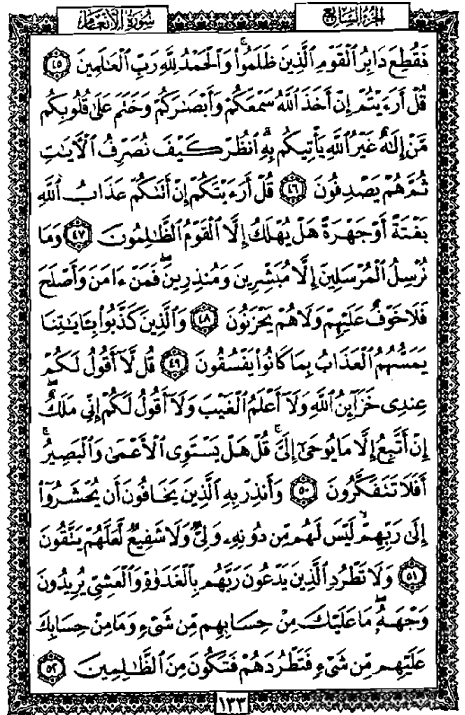 سورة الأنعام
الجزء السابع
فَقُطِعَ دَابِرُ الْقَوْمِ الَّذِينَ ظَلَمُوا۟ ۚ وَالْحَمْدُ لِلَّهِ رَبِّ الْعَـٰلَمِينَ ٤٥
قُلْ أَرَءَيْتُمْ إِنْ أَخَذَ اللَّهُ سَمْعَكُمْ وَأَبْصَـٰرَكُمْ وَخَتَمَ عَلَىٰ قُلُوبِكُم
مَّنْ إِلَـٰهٌ غَيْرُ اللَّهِ يَأْتِيكُم بِهِ ۗ انظُرْ كَيْفَ نُصَرِّفُ الْـَٔايَـٰتِ
ثُمَّ هُمْ يَصْدِفُونَ ٤٦ قُلْ أَرَءَيْتَكُمْ إِنْ أَتَىٰكُمْ عَذَابُ اللَّهِ
بَغْتَةً أَوْ جَهْرَةً هَلْ يُهْلَكُ إِلَّا الْقَوْمُ الظَّـٰلِمُونَ ٤٧ وَمَا
نُرْسِلُ الْمُرْسَلِينَ إِلَّا مُبَشِّرِينَ وَمُنذِرِينَ ۖ فَمَنْ ءَامَنَ وَأَصْلَحَ
فَلَا خَوْفٌ عَلَيْهِمْ وَلَا هُمْ يَحْزَنُونَ ٤٨ وَالَّذِينَ كَذَّبُوا۟ بِـَٔايَـٰتِنَا
يَمَسُّهُمُ الْعَذَابُ بِمَا كَانُوا۟ يَفْسُقُونَ ٤٩ قُل لَّآ أَقُولُ لَكُمْ
عِندِى خَزَآئِنُ اللَّهِ وَلَآ أَعْلَمُ الْغَيْبَ وَلَآ أَقُولُ لَكُمْ إِنِّى مَلَكٌ ۖ
إِنْ أَتَّبِعُ إِلَّا مَا يُوحَىٰٓ إِلَىَّ ۚ قُلْ هَلْ يَسْتَوِى الْأَعْمَىٰ وَالْبَصِيرُ ۚ
أَفَلَا تَتَفَكَّرُونَ ٥٠ وَأَنذِرْ بِهِ الَّذِينَ يَخَافُونَ أَن يُحْشَرُوٓا۟
إِلَىٰ رَبِّهِمْ ۙ لَيْسَ لَهُم مِّن دُونِهِۦ وَلِىٌّ وَلَا شَفِيعٌ لَّعَلَّهُمْ يَتَّقُونَ
٥١ وَلَا تَطْرُدِ الَّذِينَ يَدْعُونَ رَبَّهُم بِالْغَدَوٰةِ وَالْعَشِىِّ يُرِيدُونَ
وَجْهَهُۥ ۖ مَا عَلَيْكَ مِنْ حِسَابِهِم مِّن شَىْءٍ وَمَا مِنْ حِسَابِكَ
عَلَيْهِم مِّن شَىْءٍ فَتَطْرُدَهُمْ فَتَكُونَ مِنَ الظَّـٰلِمِينَ ٥٢
١٣٣